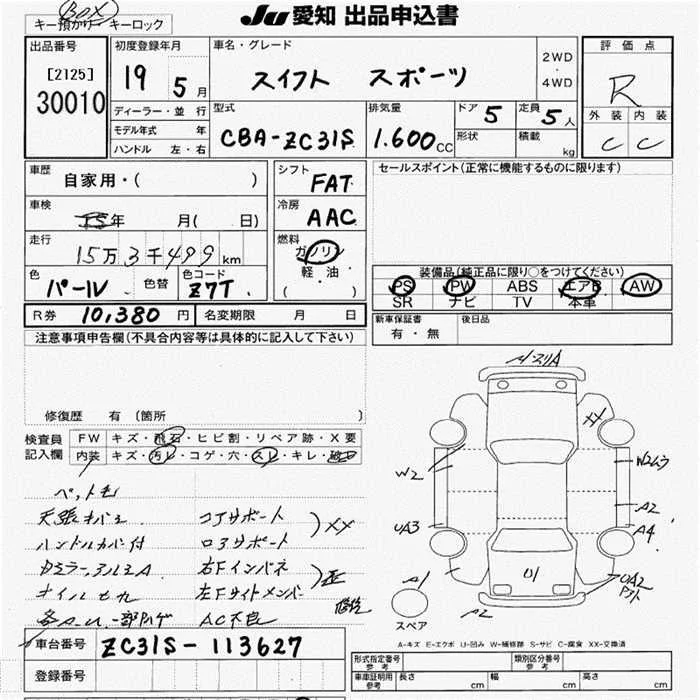 BOX
キー預かり キーロック
Ju 愛知 出品申込書
出品番号
[2125]
30010
初度登録年月
19 5月
ディーラー・並 行
モデル年式 年
ハンドル 左・右
車名・グレード
スイフト スポーツ
2WD
・
4WD
型式
CBA-ZC31S
排気量
1.600cc
ドア 5
定員 5人
形状
積載 kg
評価点
R
外装 内装
C C
車歴
自家用・( )
車検
15年 月( 日)
走行
15万3千499km
色
パール
色替
色コード
Z7T
シフト
FAT
冷房
AAC
燃料
ガソリン
軽・油
( )
R券 10,380円
名変期限 月 日
セールスポイント(正常に機能するものに限ります)
装備品(純正品に限り○をつけてください)
PS PW ABS エアB AW
SR ナビ TV 本革
新車保証書
有・無
後日品
注意事項申告欄(不具合内容等は具体的に記入して下さい)
修復歴 有 (箇所 )
検査員
記入欄
FW キズ・飛石・ヒビ割・リペア跡・X要
内装 キズ・汚レ・コゲ・穴・スレ・キレ・
ペット毛
ハンドルカバー付
コアサポート
右Fインパネ
左Fサイドメンバー
AC不良
XX
W2
UA3
A1
A2
U1
XX
A2
A4
UA2
スペア
A-キズ E-エクボ U-凹み W-補修跡 S-サビ C-腐食 XX-交換済
車台番号 ZC31S-113627
登録番号
形式指定番号
参考
類別区分番号
参考
車庫証明用
参考
長さ cm 幅 cm 高さ cm